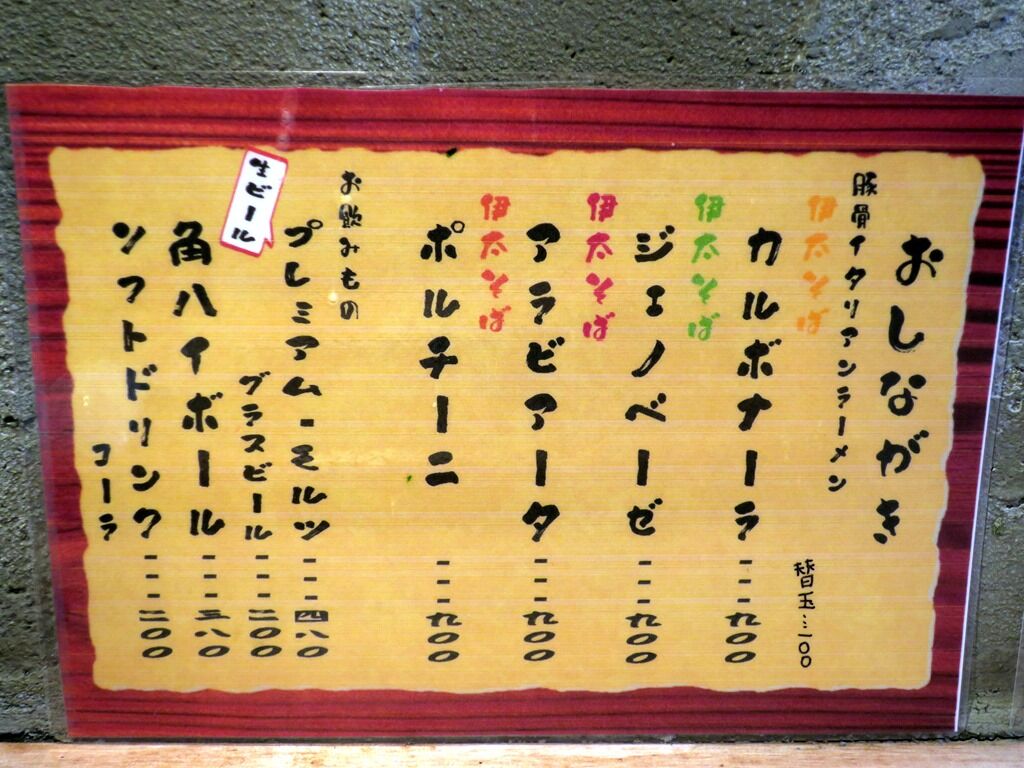 おしながき
豚骨イタリアンラーメン
替玉…一〇〇
伊太そば
カルボナーラ---九〇〇
伊太そば
ジェノベーゼ---九〇〇
伊太そば
アラビアータ---九〇〇
伊太そば
ポルチーニ---九〇〇
お飲みもの
プレミアム・モルツ---四八〇
生ビール
グラスビール---二〇〇
角ハイボール---三八〇
ソフトドリンク---二〇〇
コーラ